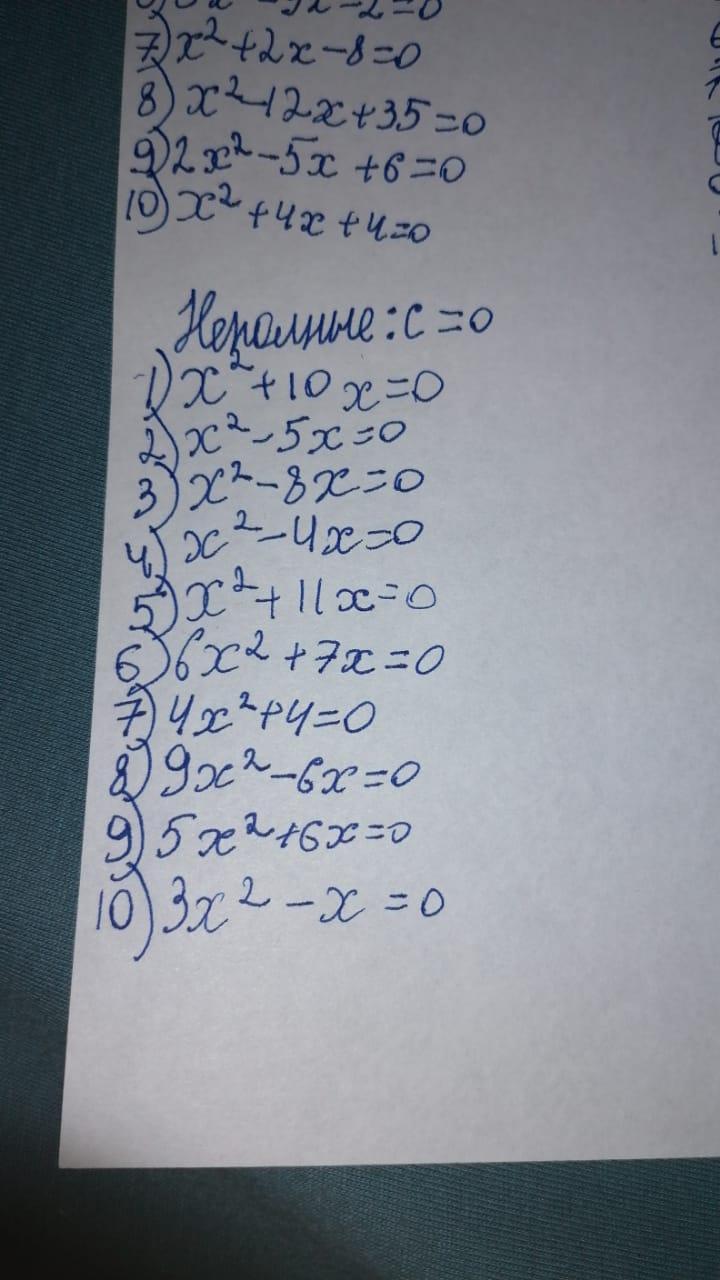 7) x²+2x-8=0
8) x²-12x+35=0
9) 2x²-5x+6=0
10) x²+4x+4=0
Неполные: c=0
1) x²+10x=0
2) x²-5x=0
3) x²-8x=0
4) x²-4x=0
5) x²+11x=0
6) 6x²+7x=0
7) 4x²+4=0
8) 9x²-6x=0
9) 5x²+6x=0
10) 3x²-x=0